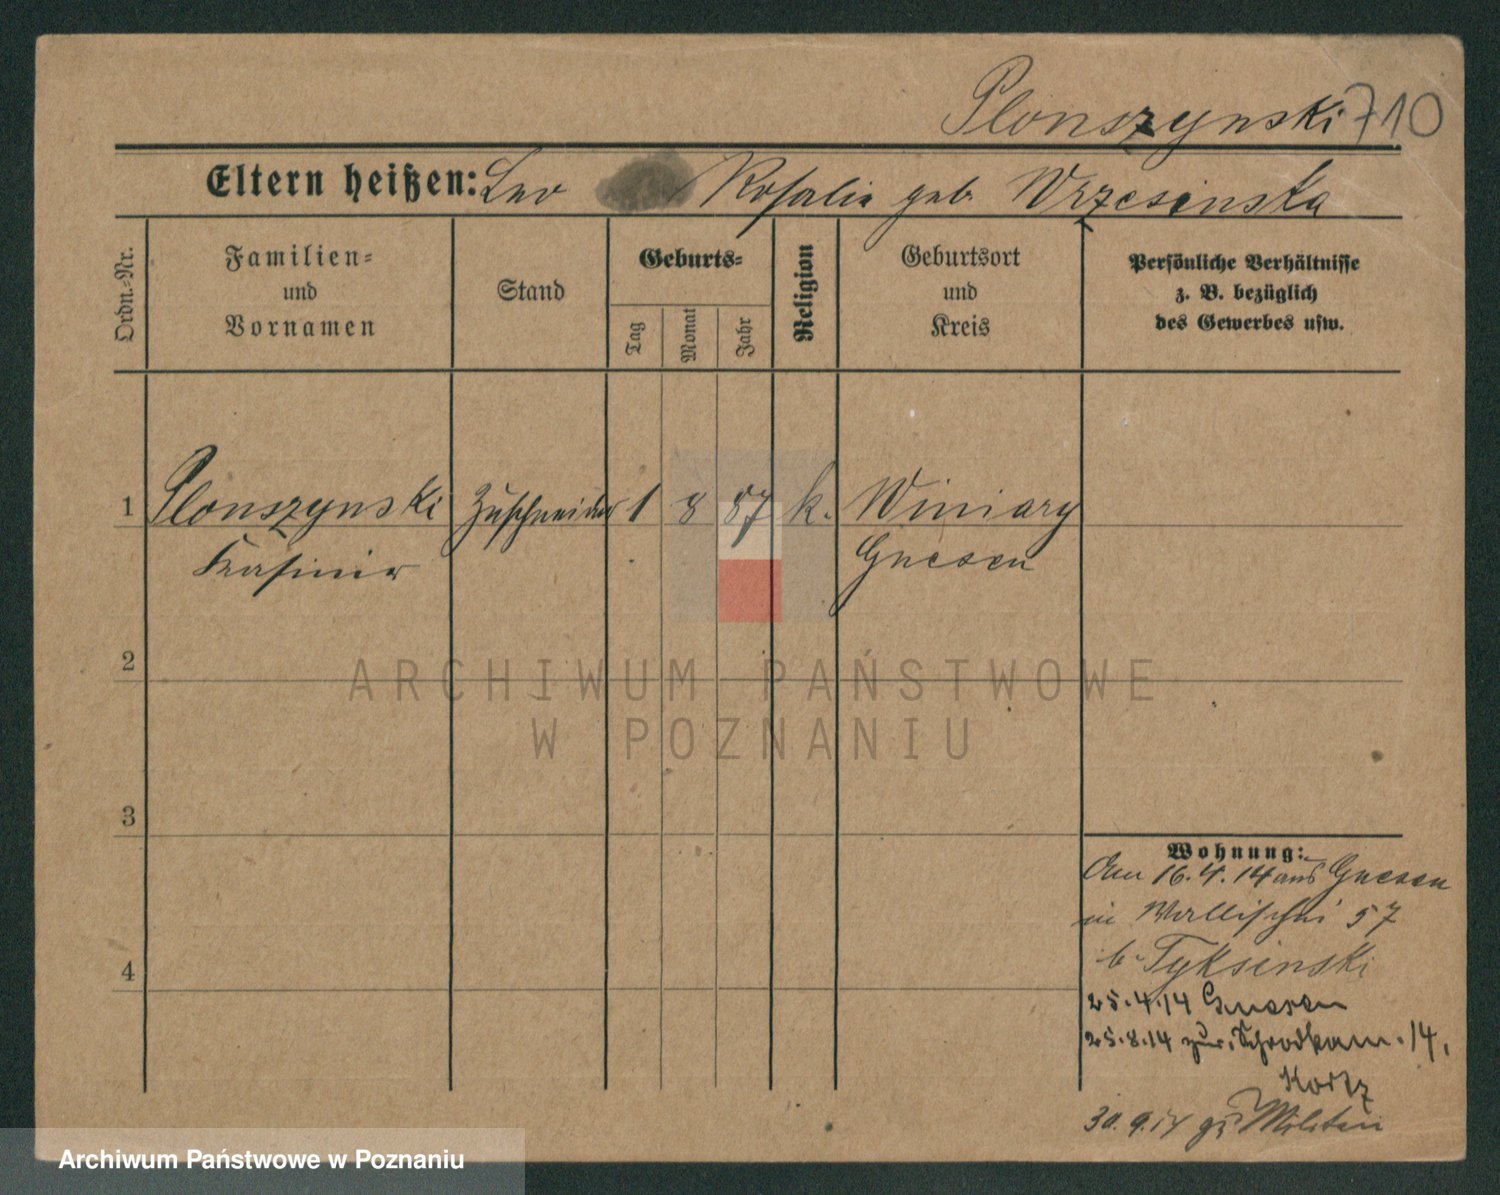 Plonszynski 710
Eltern heißen: Leo Rosalie geb. Wrzesinska
Ordn.-Nr.
Familien-
und
Vornamen
Stand
Geburts-
Tag
Monat
Jahr
Religion
Geburtsort
und
Kreis
Persönliche Verhältnisse
z. B. bezüglich
des Gewerbes usw.
1 Plonszynski Zuschneider 1 8 87 k. Winiary
Kasimir Gnesen
2
ARCHIWUM PAŃSTWOWE
W POZNANIU
3
Wohnung:
Am 16.4.14 aus Gnesen
in Wallischei 57
b. Tyksinski
4
25.4.14 Gnesen
25.8.14 zur. 14,
30.9.14 zu Militär
Archiwum Państwowe w Poznaniu